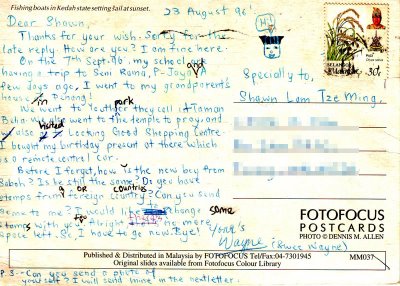 Fishing boats in Kedah state setting sail at sunset.
23 August 96'
Dear Shawn,
Thanks for your wish. Sorry for the
late reply. How are you? I am fine here.
On the 7th Sept. 96, my school is
having a trip to Seni Rama, P-Jaya. A
few days ago, I went to my grandparent's
house in Penang!
We went to Youther park they call it Taman
Belia. We also went to the temple to pray, and
I also visited Looking Good Shopping Centre.
I bought my birthday present at there which
is a remote control car.
Before I forget, how is the new boy from
Sabah? Is he still the same? Do you have
stamps from foreign countries? Can you send
some to me? I would like to exchange some
stamps with you. Alright, no more
space left. So, I have to go now. Bye!
Yong's
Wayne (Bruce Wayne)
P.S - Can you send a photo of
yourself? I will send mine in the next letter.
Hi
30¢
Specially to,
Shawn Lam Tze Ming,
FOTOFOCUS
POSTCARDS
PHOTO © DENNIS M. ALLEN
Published & Distributed in Malaysia by FOTOFOCUS Tel/Fax:04-7301945
Original slides available from Fotofocus Colour Library
MM037